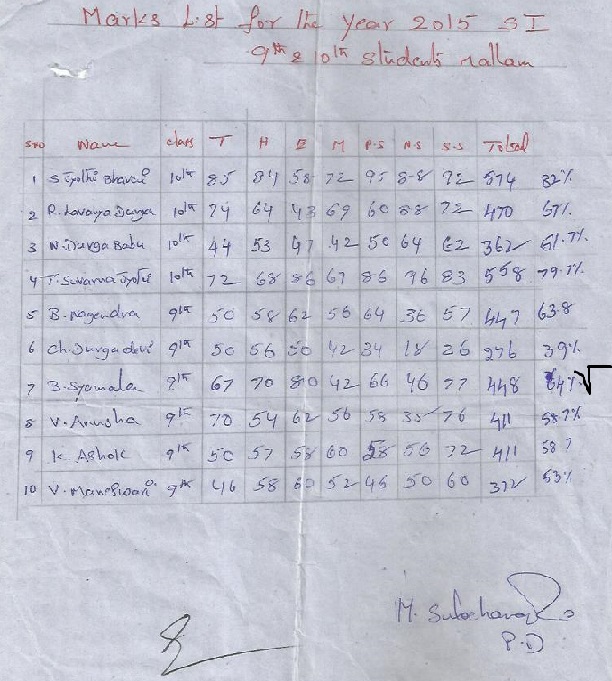 Marks List for the Year 2015 SI
9th & 10th students nallam
S.no Name class T H E M P.S N.S S.S Total
1 S Jyothi Bhavani 10th 85 84 58 72 95 88 92 574 82%
2 P. Lavanya Durga 10th 74 64 43 69 60 88 72 470 67%
3 N. Durga Babu 10th 44 53 47 42 50 64 62 362 51.7%
4 T. Suvarna Jyothi 10th 72 68 86 67 86 96 83 558 79.7%
5 B. Nagendra 9th 50 58 62 56 64 36 57 447 63.8
6 Ch. Durga devi 9th 50 56 50 42 34 18 26 276 39%
7 B. Syamala 9th 67 70 80 42 66 46 77 448 64%
8 V. Anusha 9th 70 54 62 56 58 35 76 411 58.7%
9 K Ashok 9th 50 57 58 60 58 56 72 411 58.7
10 V. Maheswari 9th 46 58 60 52 46 50 60 372 53%
M. Sulochana
P.D